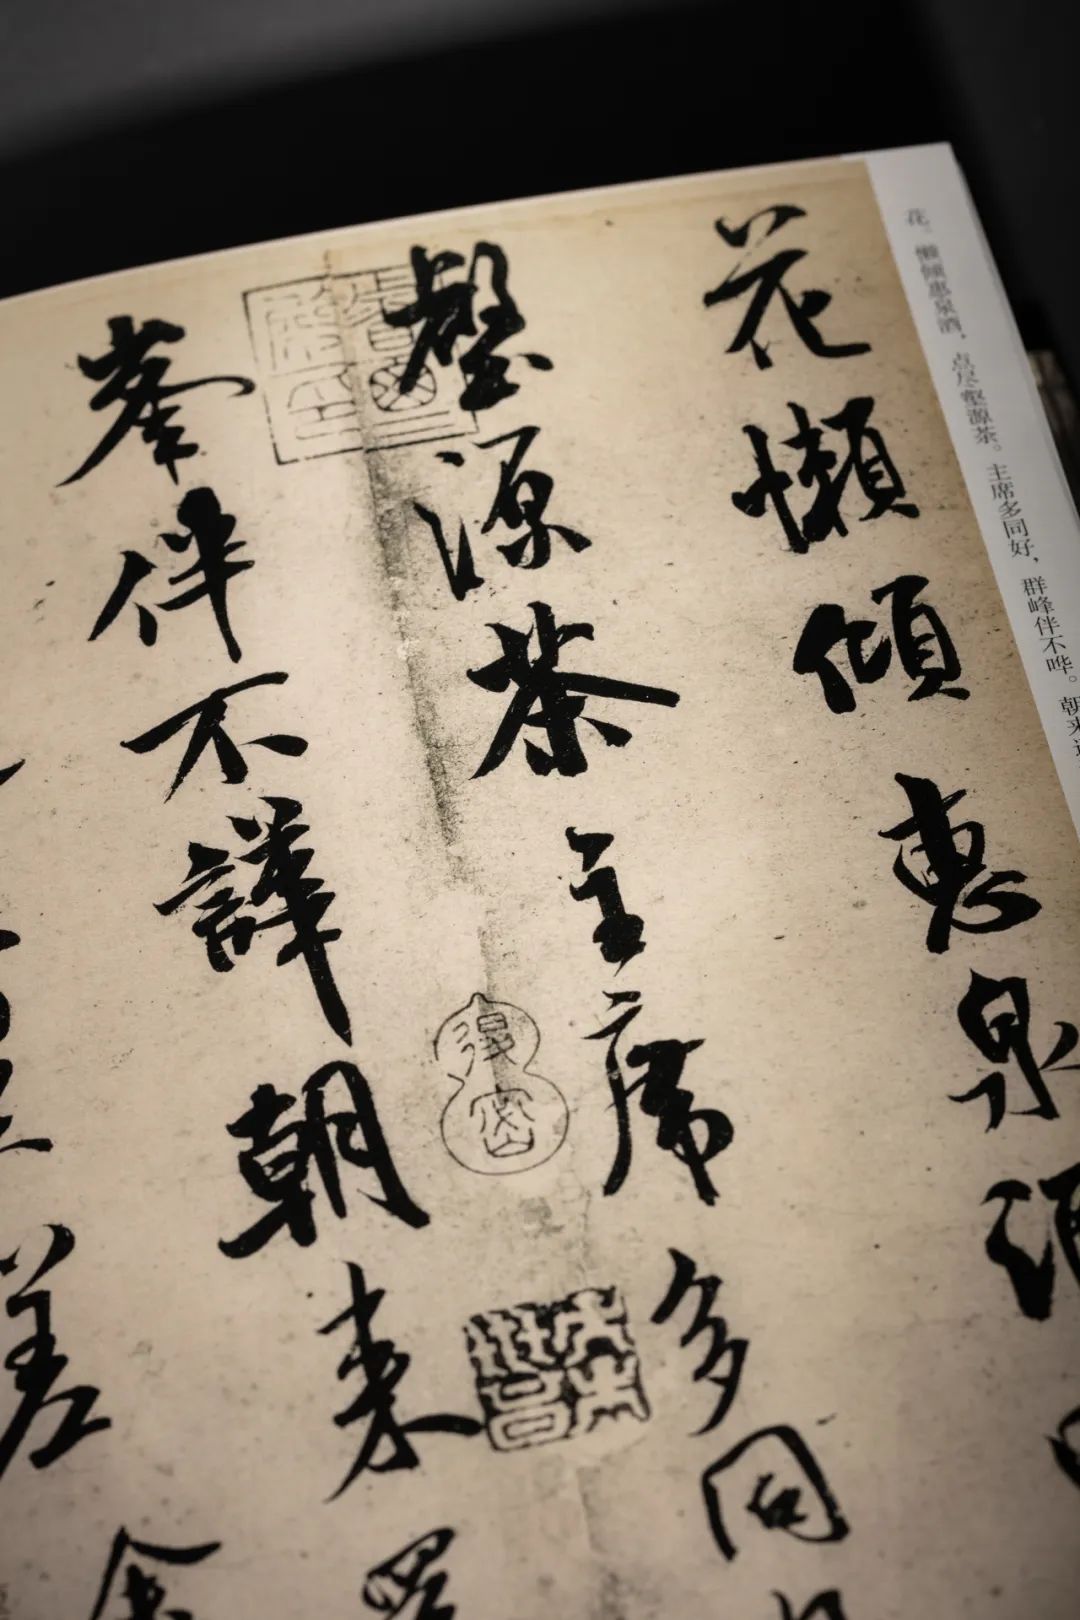 花。懒倾惠泉酒，点尽壑源茶。主席多同好，群峰伴不哗。朝来
花懶傾惠泉酒
壑源茶主席多同
峯伴不譁朝来